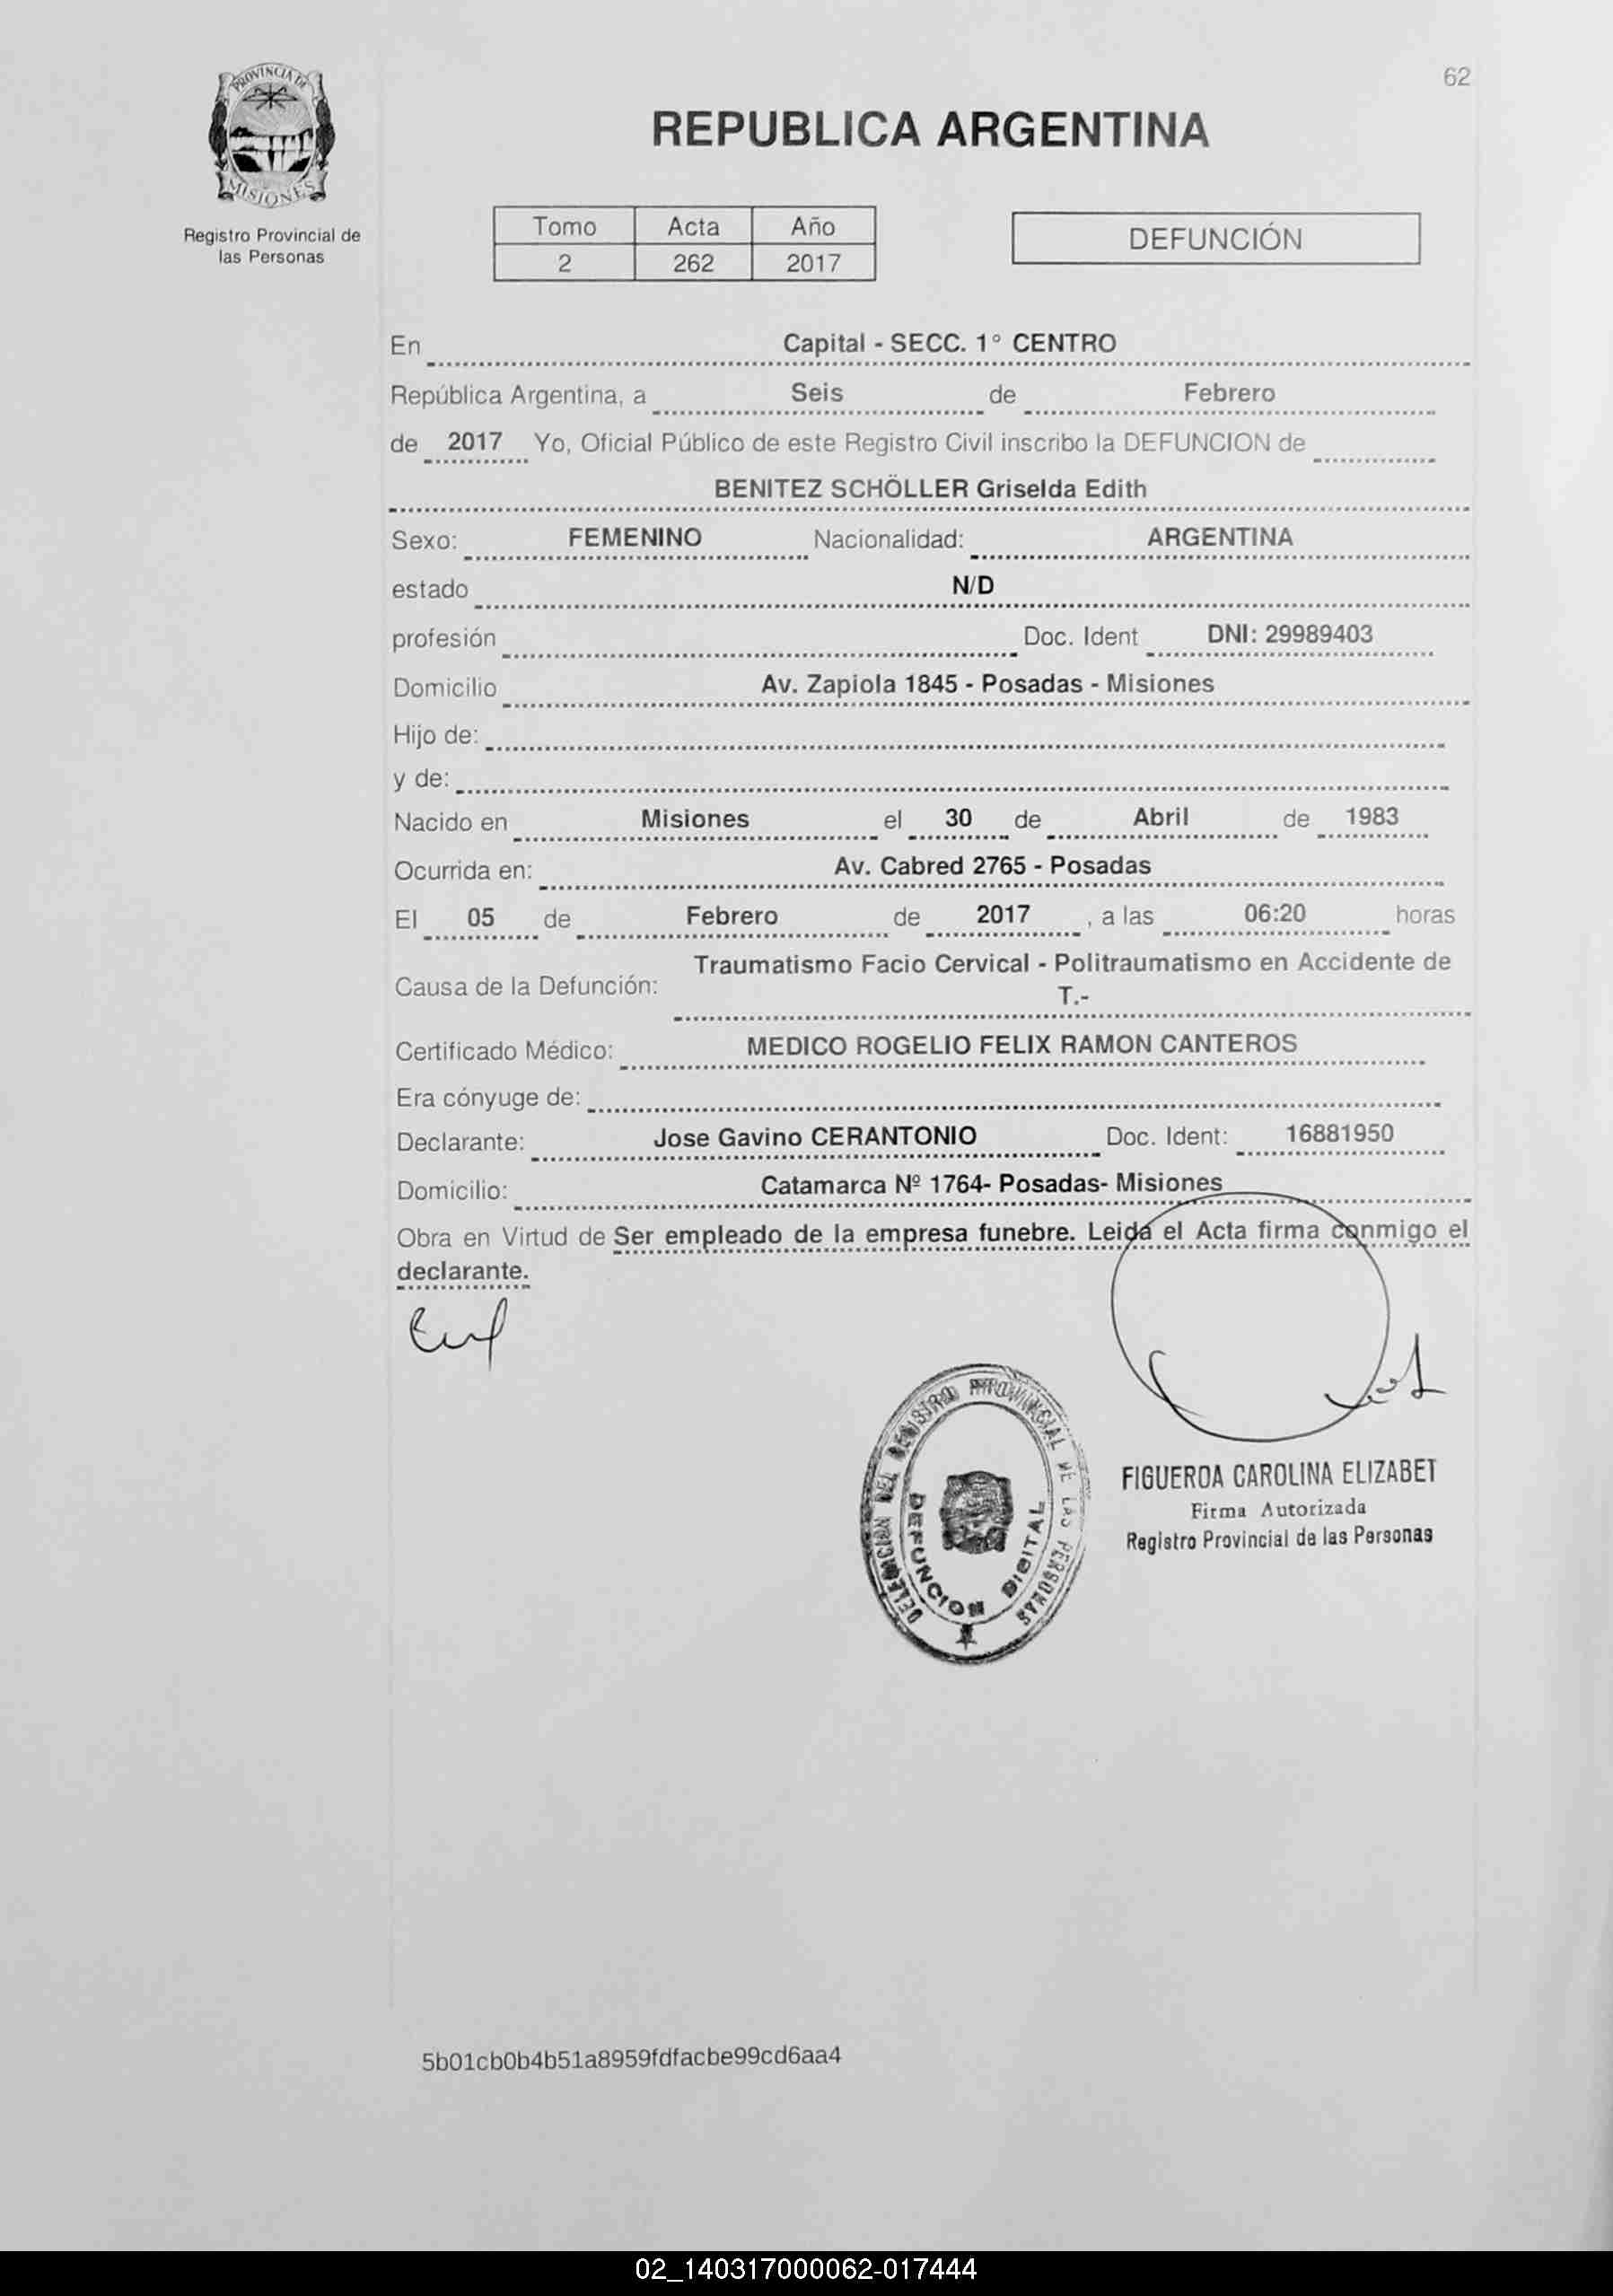 62
PROVINCIA DE
MISIONES
Registro Provincial de
las Personas
REPUBLICA ARGENTINA
Tomo Acta Año
2 262 2017
DEFUNCIÓN
En Capital - SECC. 1° CENTRO
República Argentina, a Seis de Febrero
de 2017 Yo, Oficial Público de este Registro Civil inscribo la DEFUNCION de
BENITEZ SCHÖLLER Griselda Edith
Sexo: FEMENINO Nacionalidad: ARGENTINA
estado N/D
profesión Doc. Ident DNI: 29989403
Domicilio Av. Zapiola 1845 - Posadas - Misiones
Hijo de:
y de:
Nacido en Misiones el 30 de Abril de 1983
Ocurrida en: Av. Cabred 2765 - Posadas
El 05 de Febrero de 2017 , a las 06:20 horas
Causa de la Defunción: Traumatismo Facio Cervical - Politraumatismo en Accidente de
T.-
Certificado Médico: MEDICO ROGELIO FELIX RAMON CANTEROS
Era cónyuge de:
Declarante: Jose Gavino CERANTONIO Doc. Ident: 16881950
Domicilio: Catamarca Nº 1764- Posadas- Misiones
Obra en Virtud de Ser empleado de la empresa funebre. Leida el Acta firma conmigo el
declarante.
DELEGACION DEL REGISTRO PROVINCIAL DE LAS PERSONAS
DEFUNCION DIGITAL
FIGUEROA CAROLINA ELIZABET
Firma Autorizada
Registro Provincial de las Personas
5b01cb0b4b51a8959fdfacbe99cd6aa4
02_140317000062-017444